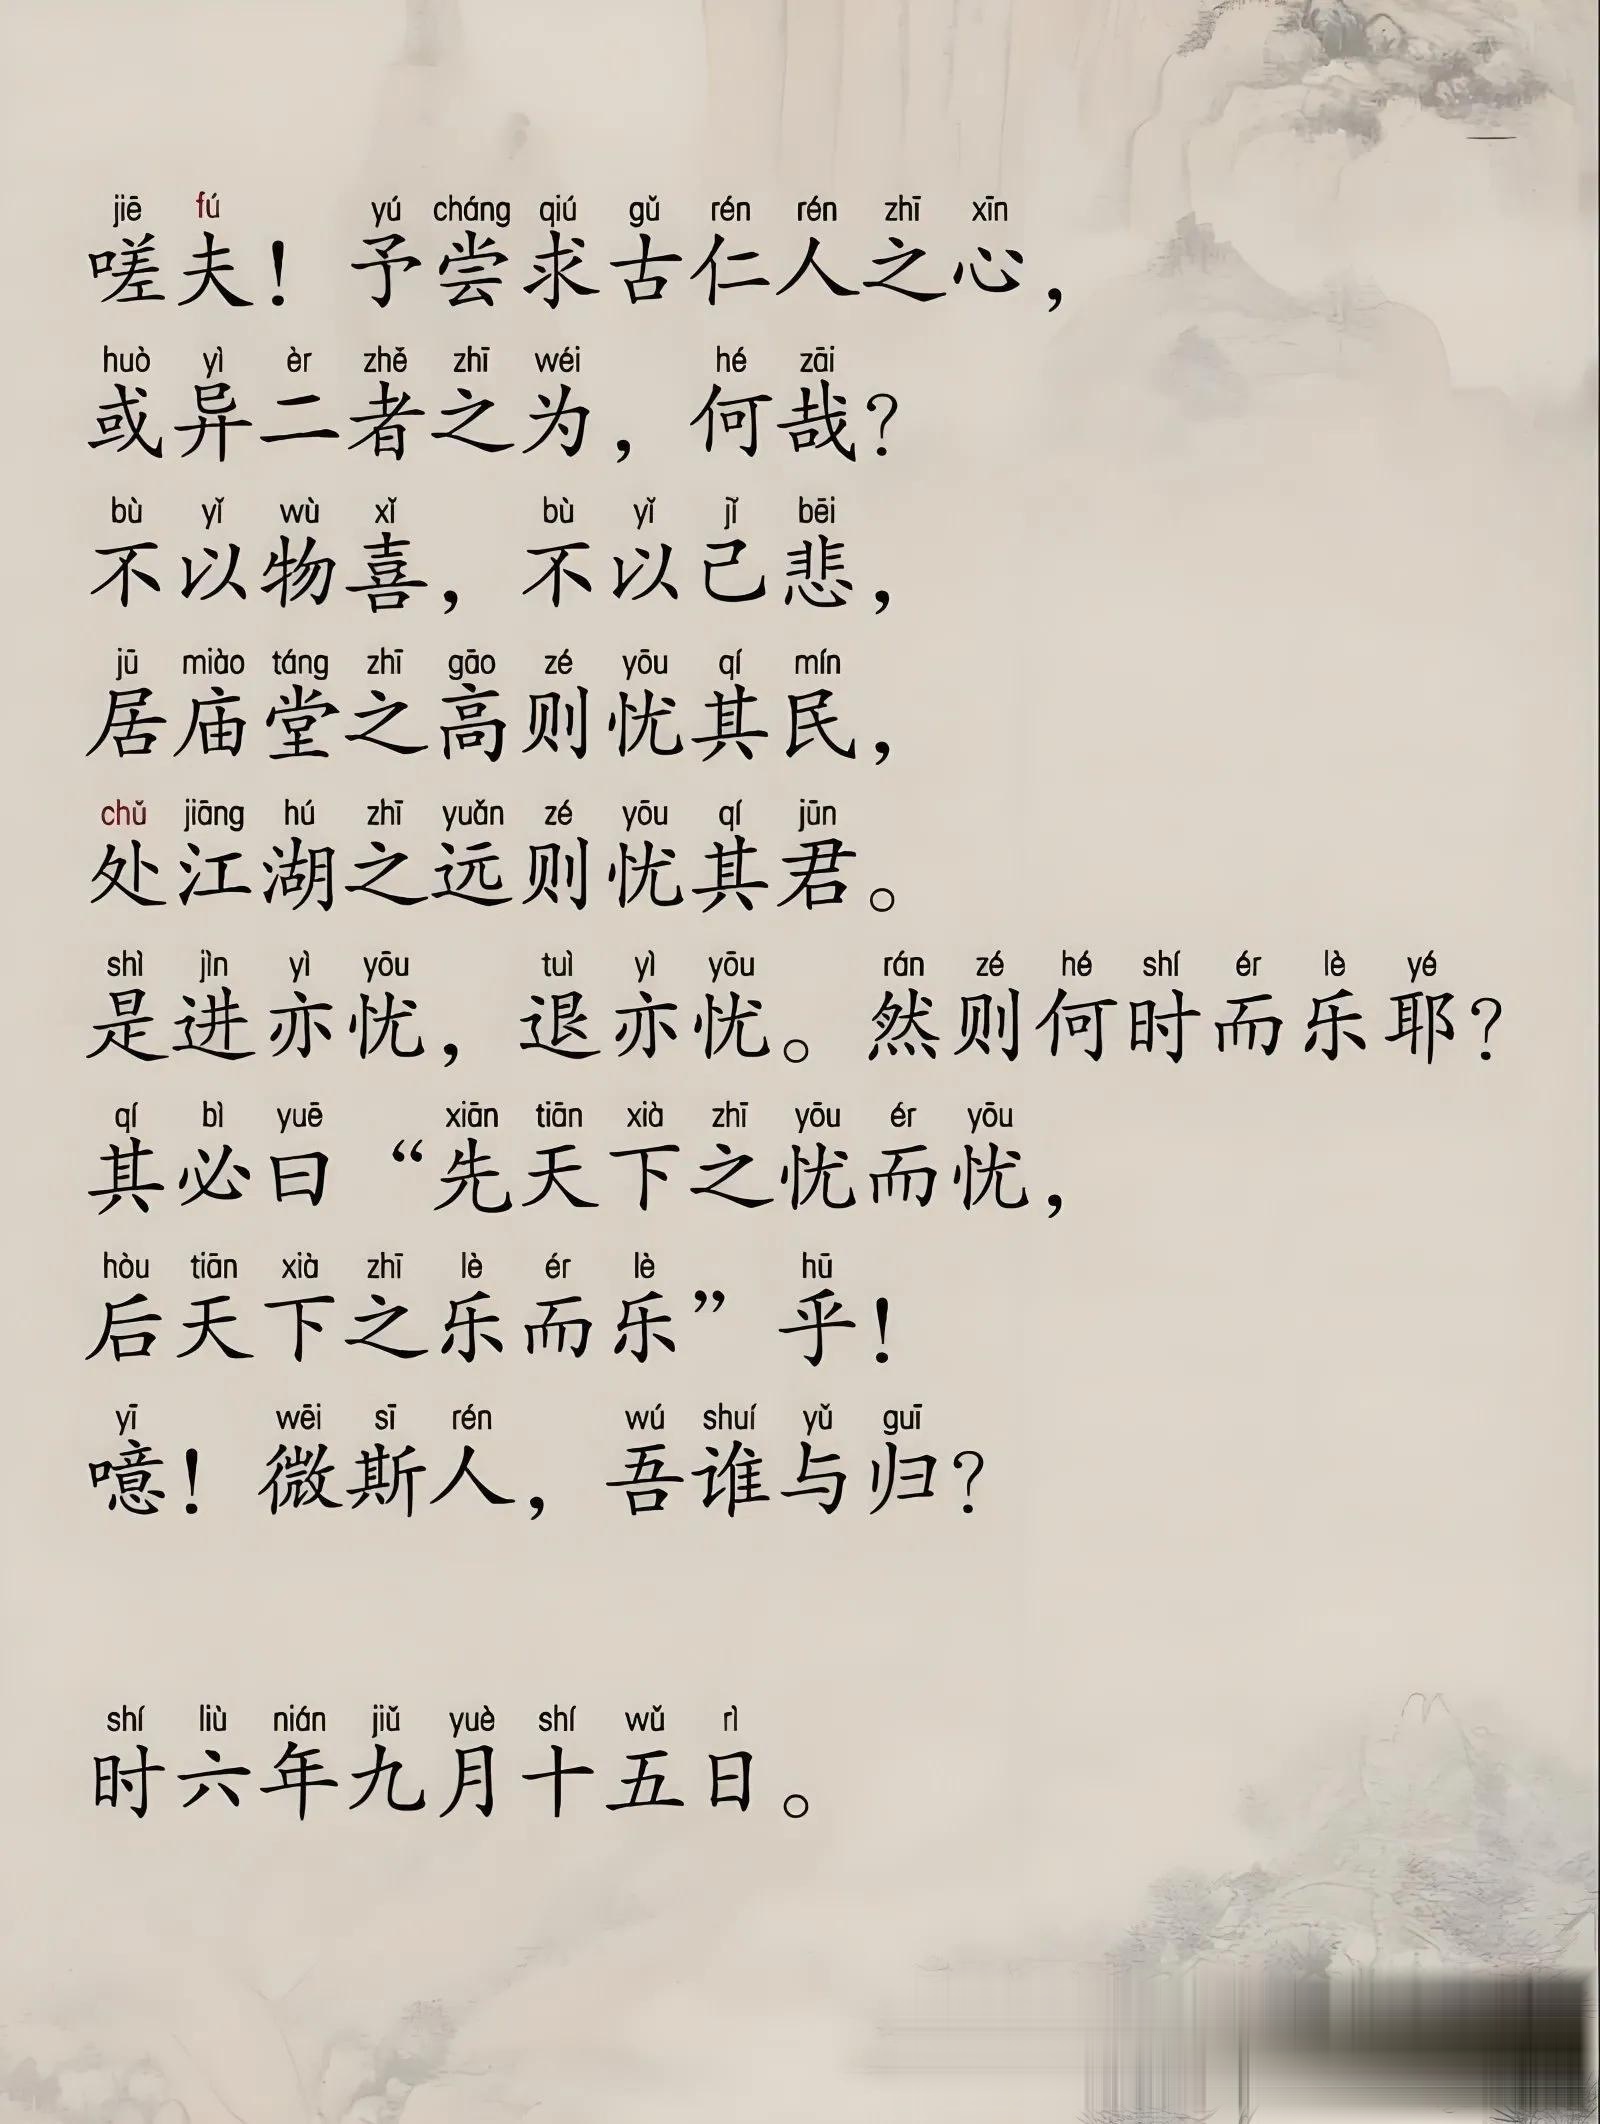 jiē fú yú cháng qiú gǔ rén rén zhī xīn
嗟夫！予尝求古仁人之心，
huò yì èr zhě zhī wéi hé zāi
或异二者之为，何哉？
bù yǐ wù xǐ bù yǐ jǐ bēi
不以物喜，不以己悲，
jū miào táng zhī gāo zé yōu qí mín
居庙堂之高则忧其民，
chǔ jiāng hú zhī yuǎn zé yōu qí jūn
处江湖之远则忧其君。
shì jìn yì yōu tuì yì yōu rán zé hé shí ér lè yé
是进亦忧，退亦忧。然则何时而乐耶？
qí bì yuē xiān tiān xià zhī yōu ér yōu
其必曰“先天下之忧而忧，
hòu tiān xià zhī lè ér lè hū
后天下之乐而乐”乎！
yī wēi sī rén wú shuí yǔ guī
噫！微斯人，吾谁与归？
shí liù nián jiǔ yuè shí wǔ rì
时六年九月十五日。